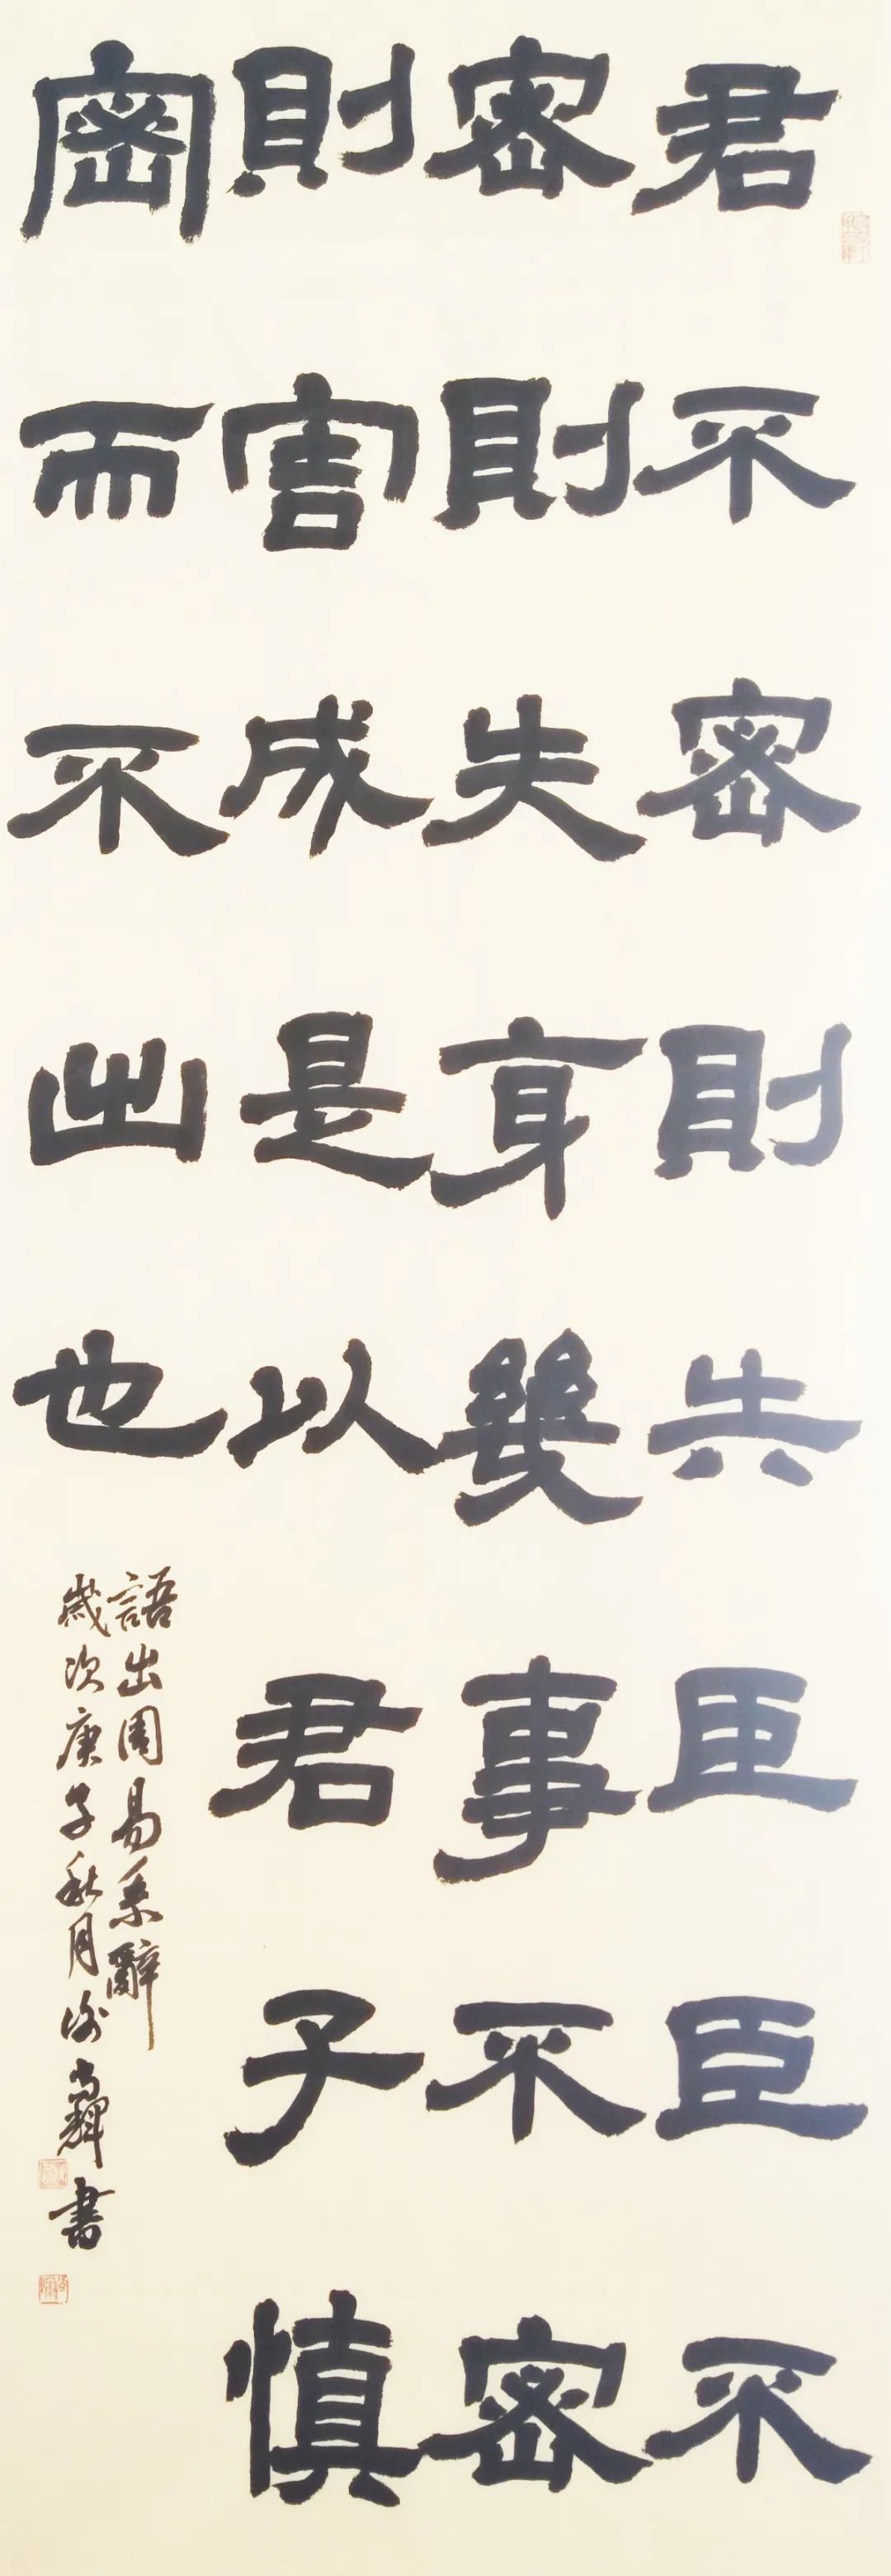 君不密則失臣臣不
密則失身幾事不密
則害成是以君子慎
密而不出也
語出周易系辭
歲次庚子秋月謝尚輝書